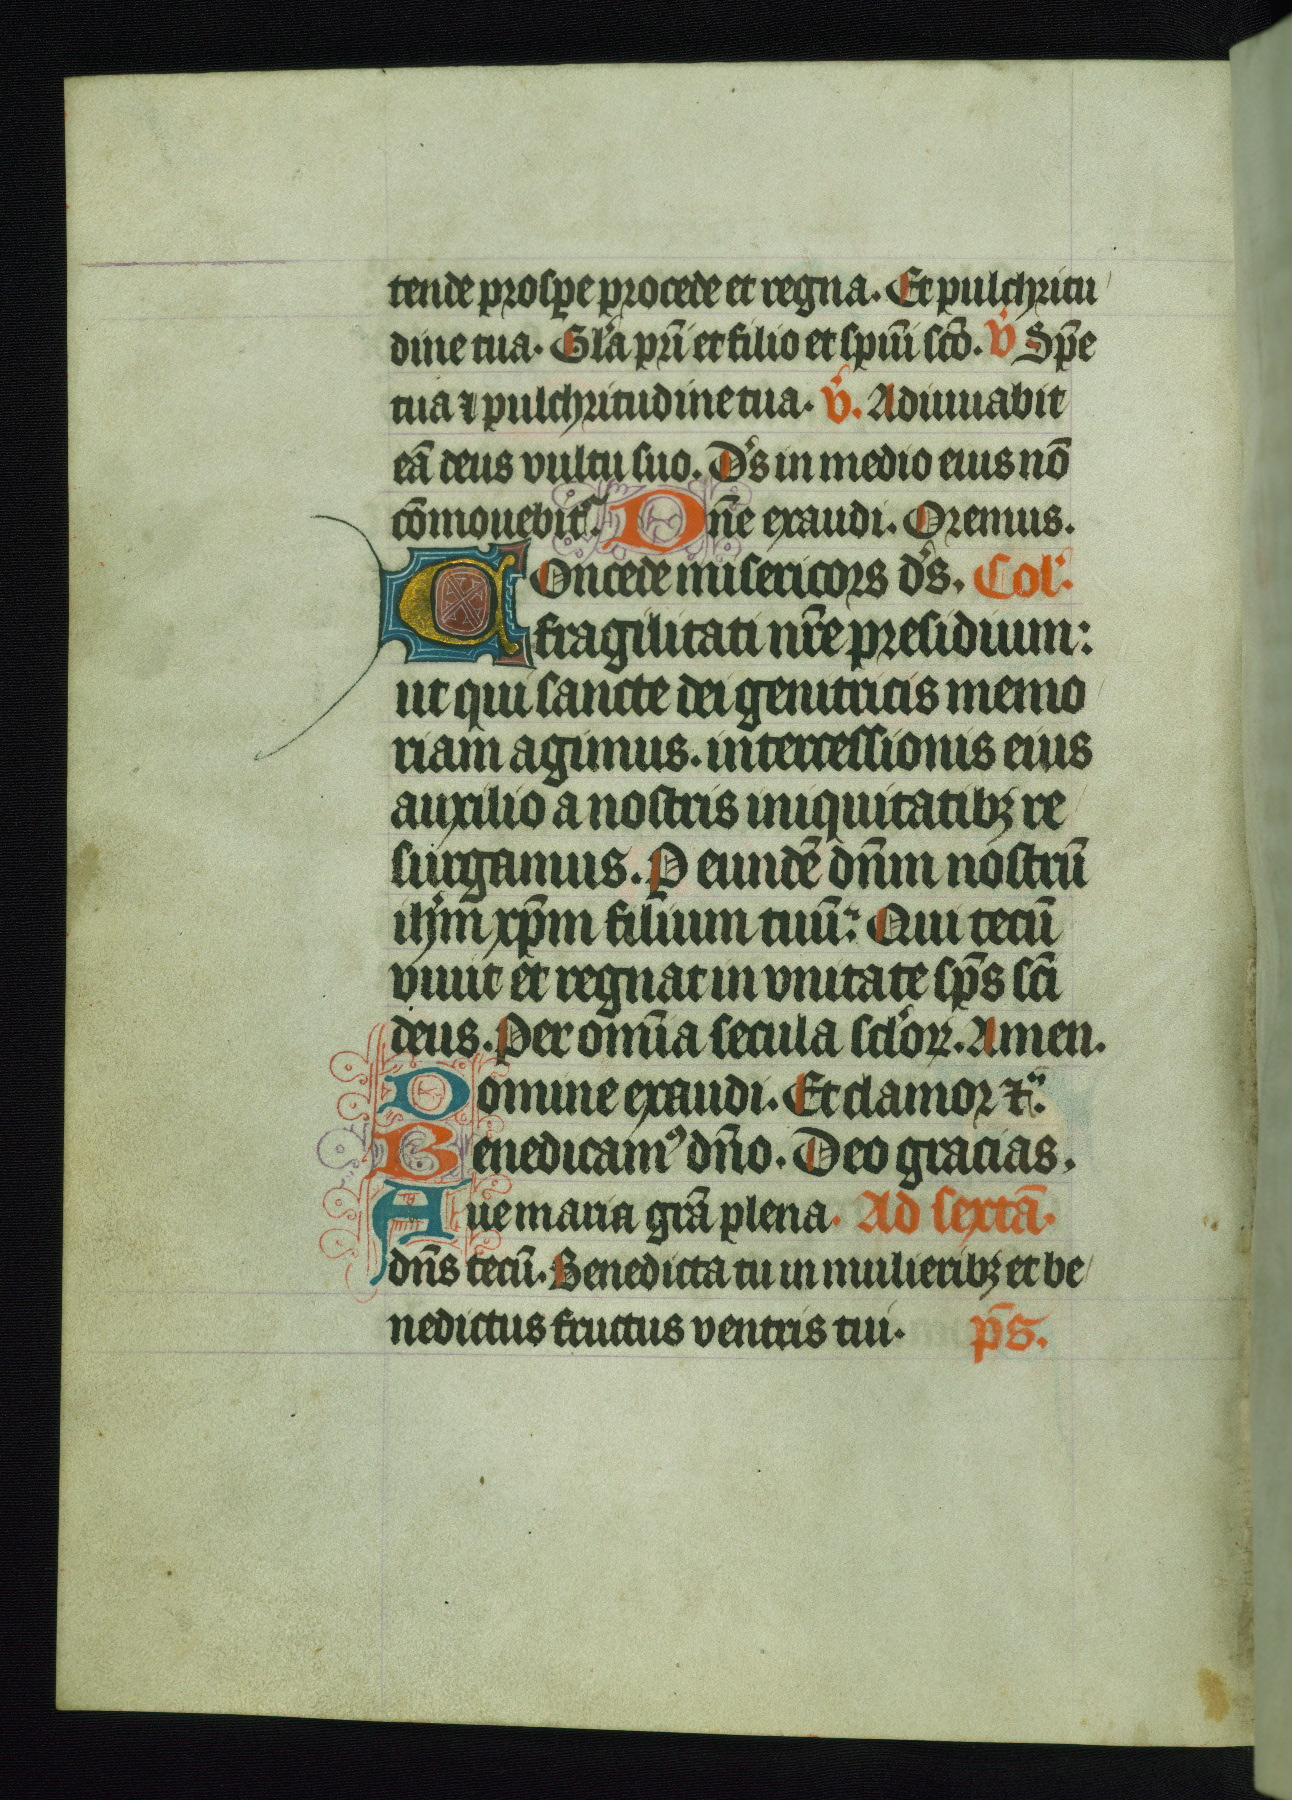 tende prospe procede et regna. Et pulchritu
dine tua. Gl'a pr̄i et filio et spiūi sc̄o. v̊ Sp̄e
tua ⁊ pulchritudine tua. v̊. Adiuuabit
eā deus vultu suo. D's in medio eius nō
cōmouebit᷑. Dn̄e exaudi. Oremus.
Concede misericors d's. Col'.
fragilitati nr̄e presidium:
ut qui sancte dei genitricis memo
riam agimus. intercessionis eius
auxilio a nostris iniquitatibꝫ re
surgamus. P eundē dn̄m nostrū
ih̄m xp̄m filium tuū: Qui tecū
viuit et regnat in vnitate sp̄s sc̄i
deus. Per omīa secula scl'oꝝ. Amen.
Domine exaudi. Et clamor ⁊c̄.
Benedicamꝰ dn̄o. Deo gracias.
Aue maria gr̄a plena. Ad sextā.
dn̄s tecū. Benedicta tu in mulieribꝫ et be
nedictus fructus ventris tui. ps̄.